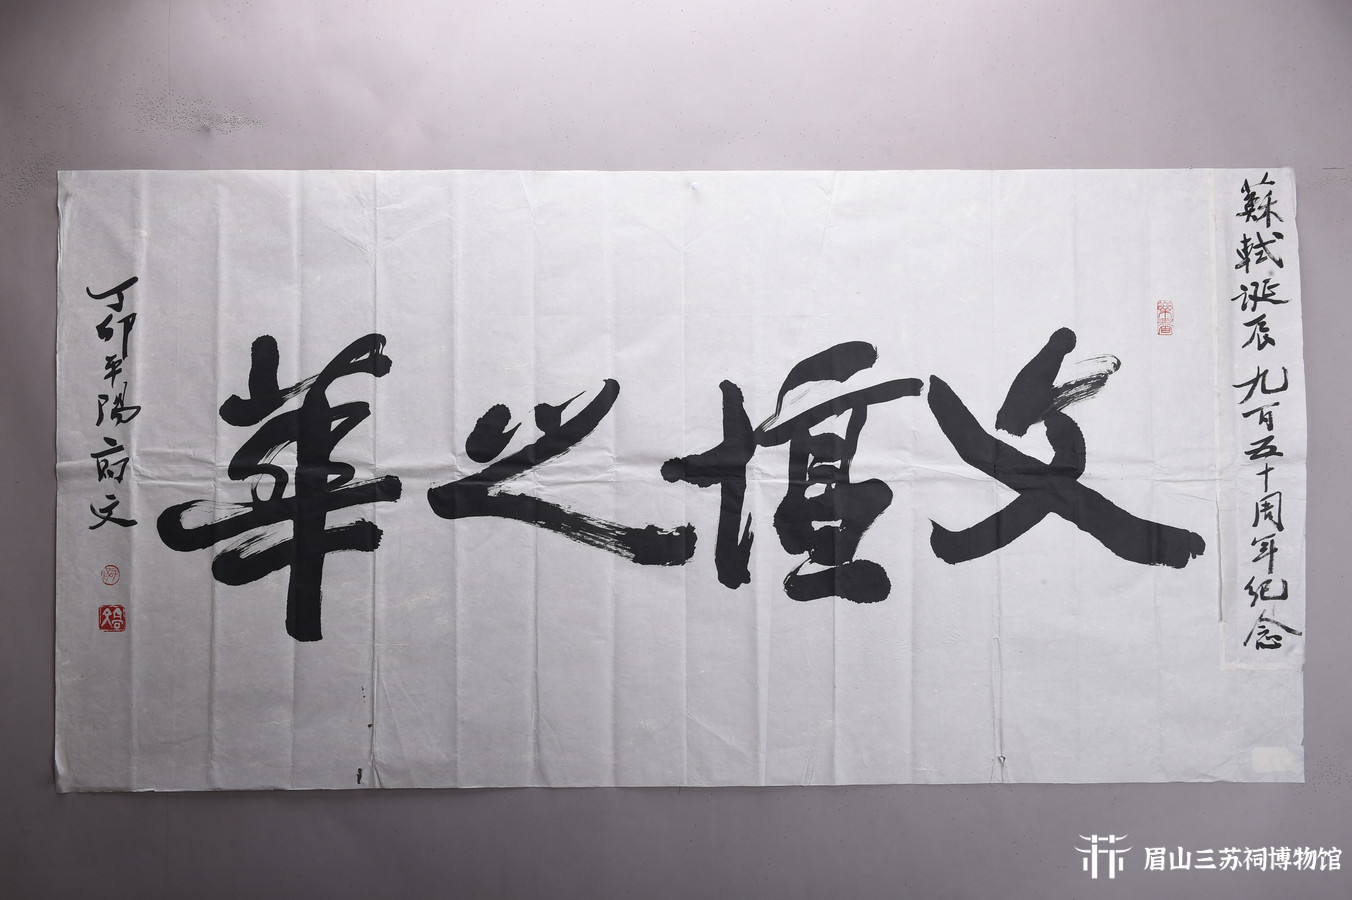 蘇軾誕辰九百五十周年紀念
文壇之華
丁卯平陽高文
眉山三苏祠博物馆